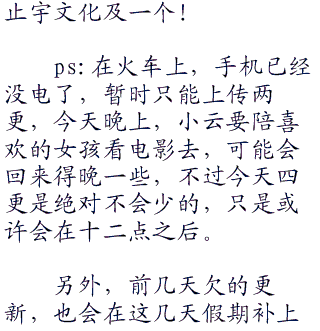 止宇文化及一个！
ps:在火车上，手机已经
没电了，暂时只能上传两
更，今天晚上，小云要陪喜
欢的女孩看电影去，可能会
回来得晚一些，不过今天四
更是绝对不会少的，只是或
许会在十二点之后。
另外，前几天欠的更
新，也会在这几天假期补上